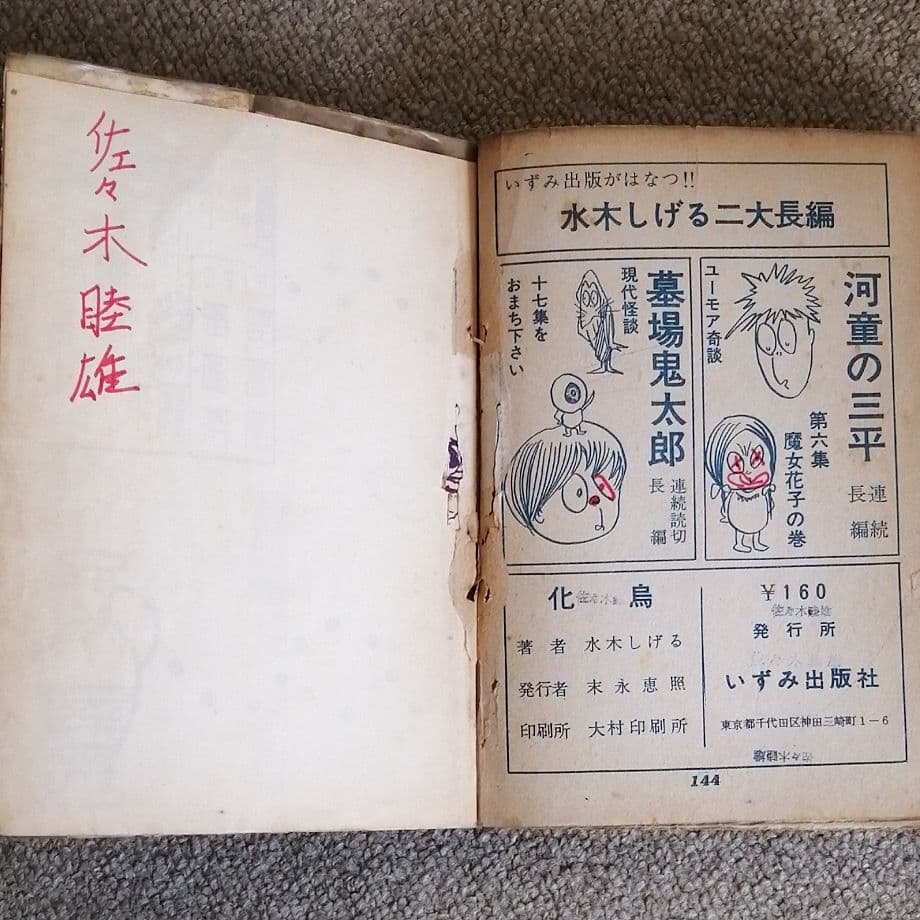 佐々木睦雄
いずみ出版がはなつ!!
水木しげる二大長編
河童の三平
連続
長編
ユーモア奇談
第六集
魔女花子の巻
墓場鬼太郎
連続読切
長編
現代怪談
十七集を
おまち下さい
化烏
佐々木睦雄
著者 水木しげる
発行者 末永恵照
印刷所 大村印刷所
¥160
佐々木睦雄
発行所
いずみ出版社
東京都千代田区神田三崎町1-6
佐々木睦雄
144